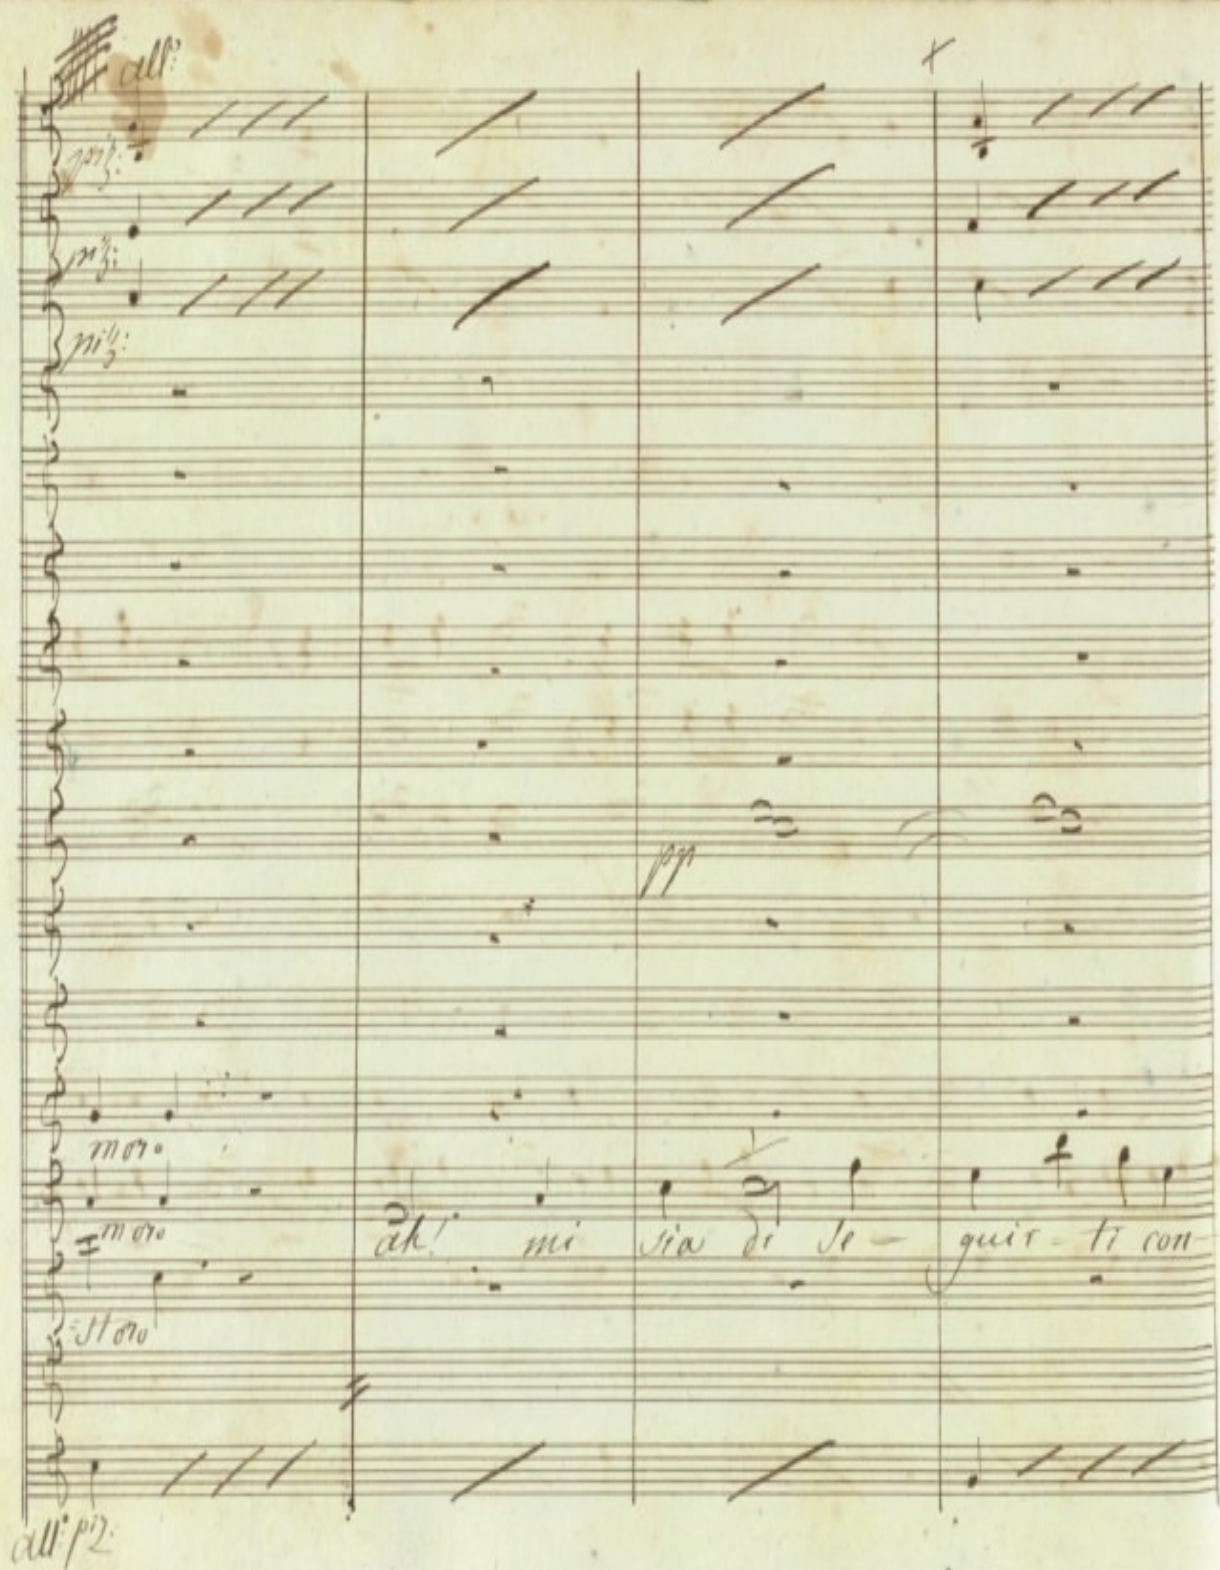 all:o
piz:
piz:
piz:
pp
moro
moro ah! mi sia di se- guir- ti con-
-storo
all:o piz: